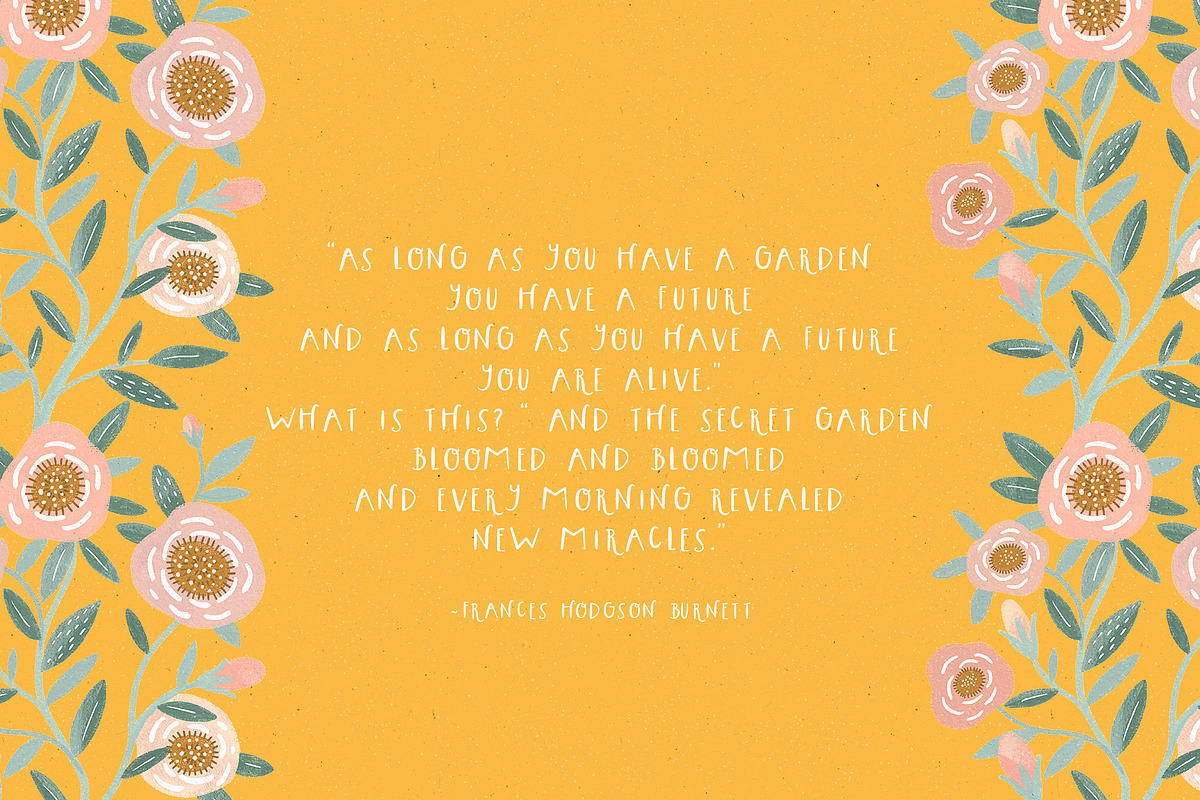 “AS LONG AS YOU HAVE A GARDEN
YOU HAVE A FUTURE
AND AS LONG AS YOU HAVE A FUTURE
YOU ARE ALIVE.”
WHAT IS THIS? “ AND THE SECRET GARDEN
BLOOMED AND BLOOMED
AND EVERY MORNING REVEALED
NEW MIRACLES.”
~FRANCES HODGSON BURNETT